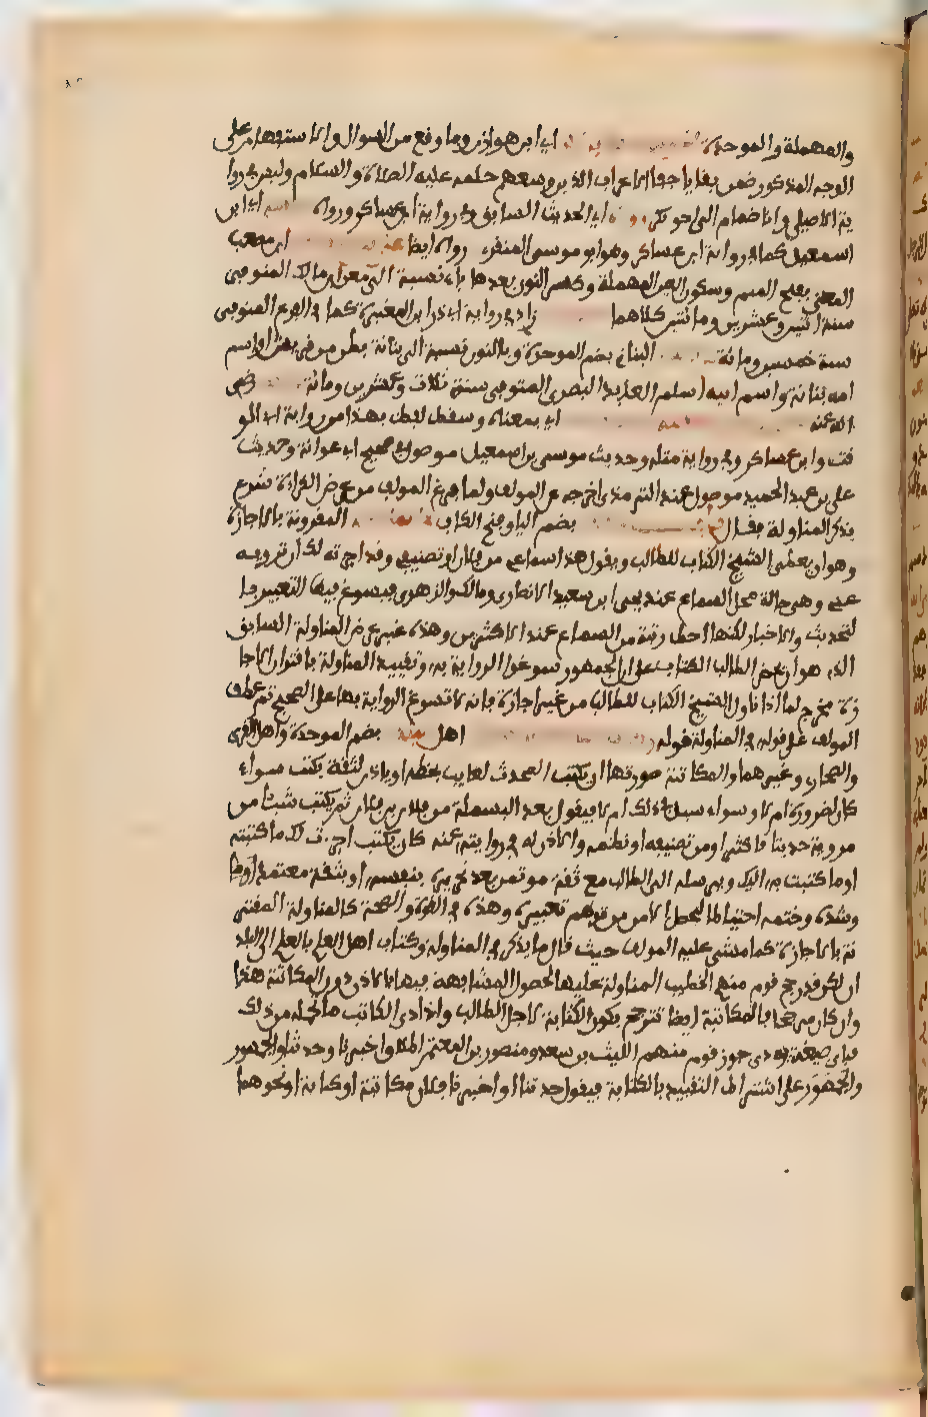 والمهملة والموحدة اي ابن هوازن وما وقع من السوال والاستفهام على
الوجه المذكور من بقايا جفا الاعراب الذين وسعهم حلمه عليه الصلاة والسلام وليس في روا
ية الاصيلي وانا ضمام الى اخو بكر اي الحديث السابق وفي رواية ابن عساكر ورواه اي ابن
اسمعيل كما في رواية ابن عساكر وهو ابو موسى المنقري رواه ايضا ابن مصعب
المعني بفتح الميم وسكون العين المهملة وكسر النون بعدها ياء نسبة الى معن ابن مالك المتوفى
سنة اثنين وعشرين ومائتين كلاهما زاد في رواية ابي ذر ابن المغيرة كما في الفرع المتوفى
سنة خمسين ومائة البناني بضم الموحدة وبالنون نسبة الى بنانة بطن من قريش او اسم
امه بنانة واسم ابيه اسلم العابد البصري المتوفى سنة ثلاث وعشرين ومائة رضي
الله عنه اي بمعناه وسقط لفظ بهذا من رواية ابي الو
قت وابن عساكر وفي رواية مثله وحديث موسى بن اسمعيل موصول في صحيح ابي عوانة وحديث
علي بن عبد الحميد موصول عند الترمذي اخرجه عن المولف ولما فرغ المولف من عرض القراءة شرع
يذكر المناولة فقال بضم اليا وفتح الكاف المقرونة بالاجازة
وهو ان يعطي الشيخ الكتاب للطالب ويقول هذا سماعي من فلان او تصنيفي وقد اجزت لك ان ترويه
عني وهي حالة محل السماع عند يحيى ابن سعيد الانصاري ومالك والزهري فيسوغ فيها التعبير با
لتحديث والاخبار لكنها احط رتبة من السماع عند الاكثرين وهذه غير عرض المناولة السابق
الذي هو ان يحضر الطالب الكتاب على ان الجمهور سوغوا الرواية بها وتقييد المناولة باقتران الاجا
زة مخرج لما اذا ناول الشيخ الكتاب للطالب من غير اجازة فانه لا تسوغ الرواية بها على الصحيح ثم عطف
المولف على قوله في المناولة قوله اهل بضم الموحدة واهل القرى
والصحاري وغيرهما والمكاتبة صورتها ان يكتب المحدث لغايب بخطه او ياذن لثقة يكتب سواء
كان لضرورة ام لا وسواء سئل في ذلك ام لا فيقول بعد البسملة من فلان بن فلان ثم يكتب شيئا من
مرويه حديثا فاكثر او من تصنيفه او نظمه والاذن له في روايته عنه كان يكتب اجزت لك ما كتبته
او ما كتبت به اليك ويرسله الى الطالب مع ثقة موتمن بعد تحريره بنفسه او بثقة معتمد
وشده وختمه احتياطا ليحصل الامن من توهم تغييره وهذه في القوة والصحة كالمناولة المقتر
نة بالاجازة كما مشى عليه المولف حيث قال ما يذكر في المناولة وكتاب اهل العلم بالعلم الى البلد
ان لكن قد رجح قوم منهم الخطيب المناولة عليها لحصول المشافهة فيها بالاذن دون المكاتبة هذا
وان كان مرجحا فالمكاتبة ايضا تترجح بكون الكتابة لاجل الطالب واذا ادى الكاتب ما تحمله من ذلك
فباي صيغة يودي جوز قوم منهم الليث بن سعد ومنصور بن المعتمر اطلاق اخبرنا وحدثنا والجمهور
والجمهور على اشتراط التقييد بالكتابة فيقول حدثنا او اخبرنا فلان مكاتبة او كتابة او نحوهما